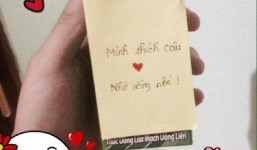 Mình thích cậu
Nhớ uống nhé !
Thức Uống Lúa Mạch Uống Liền